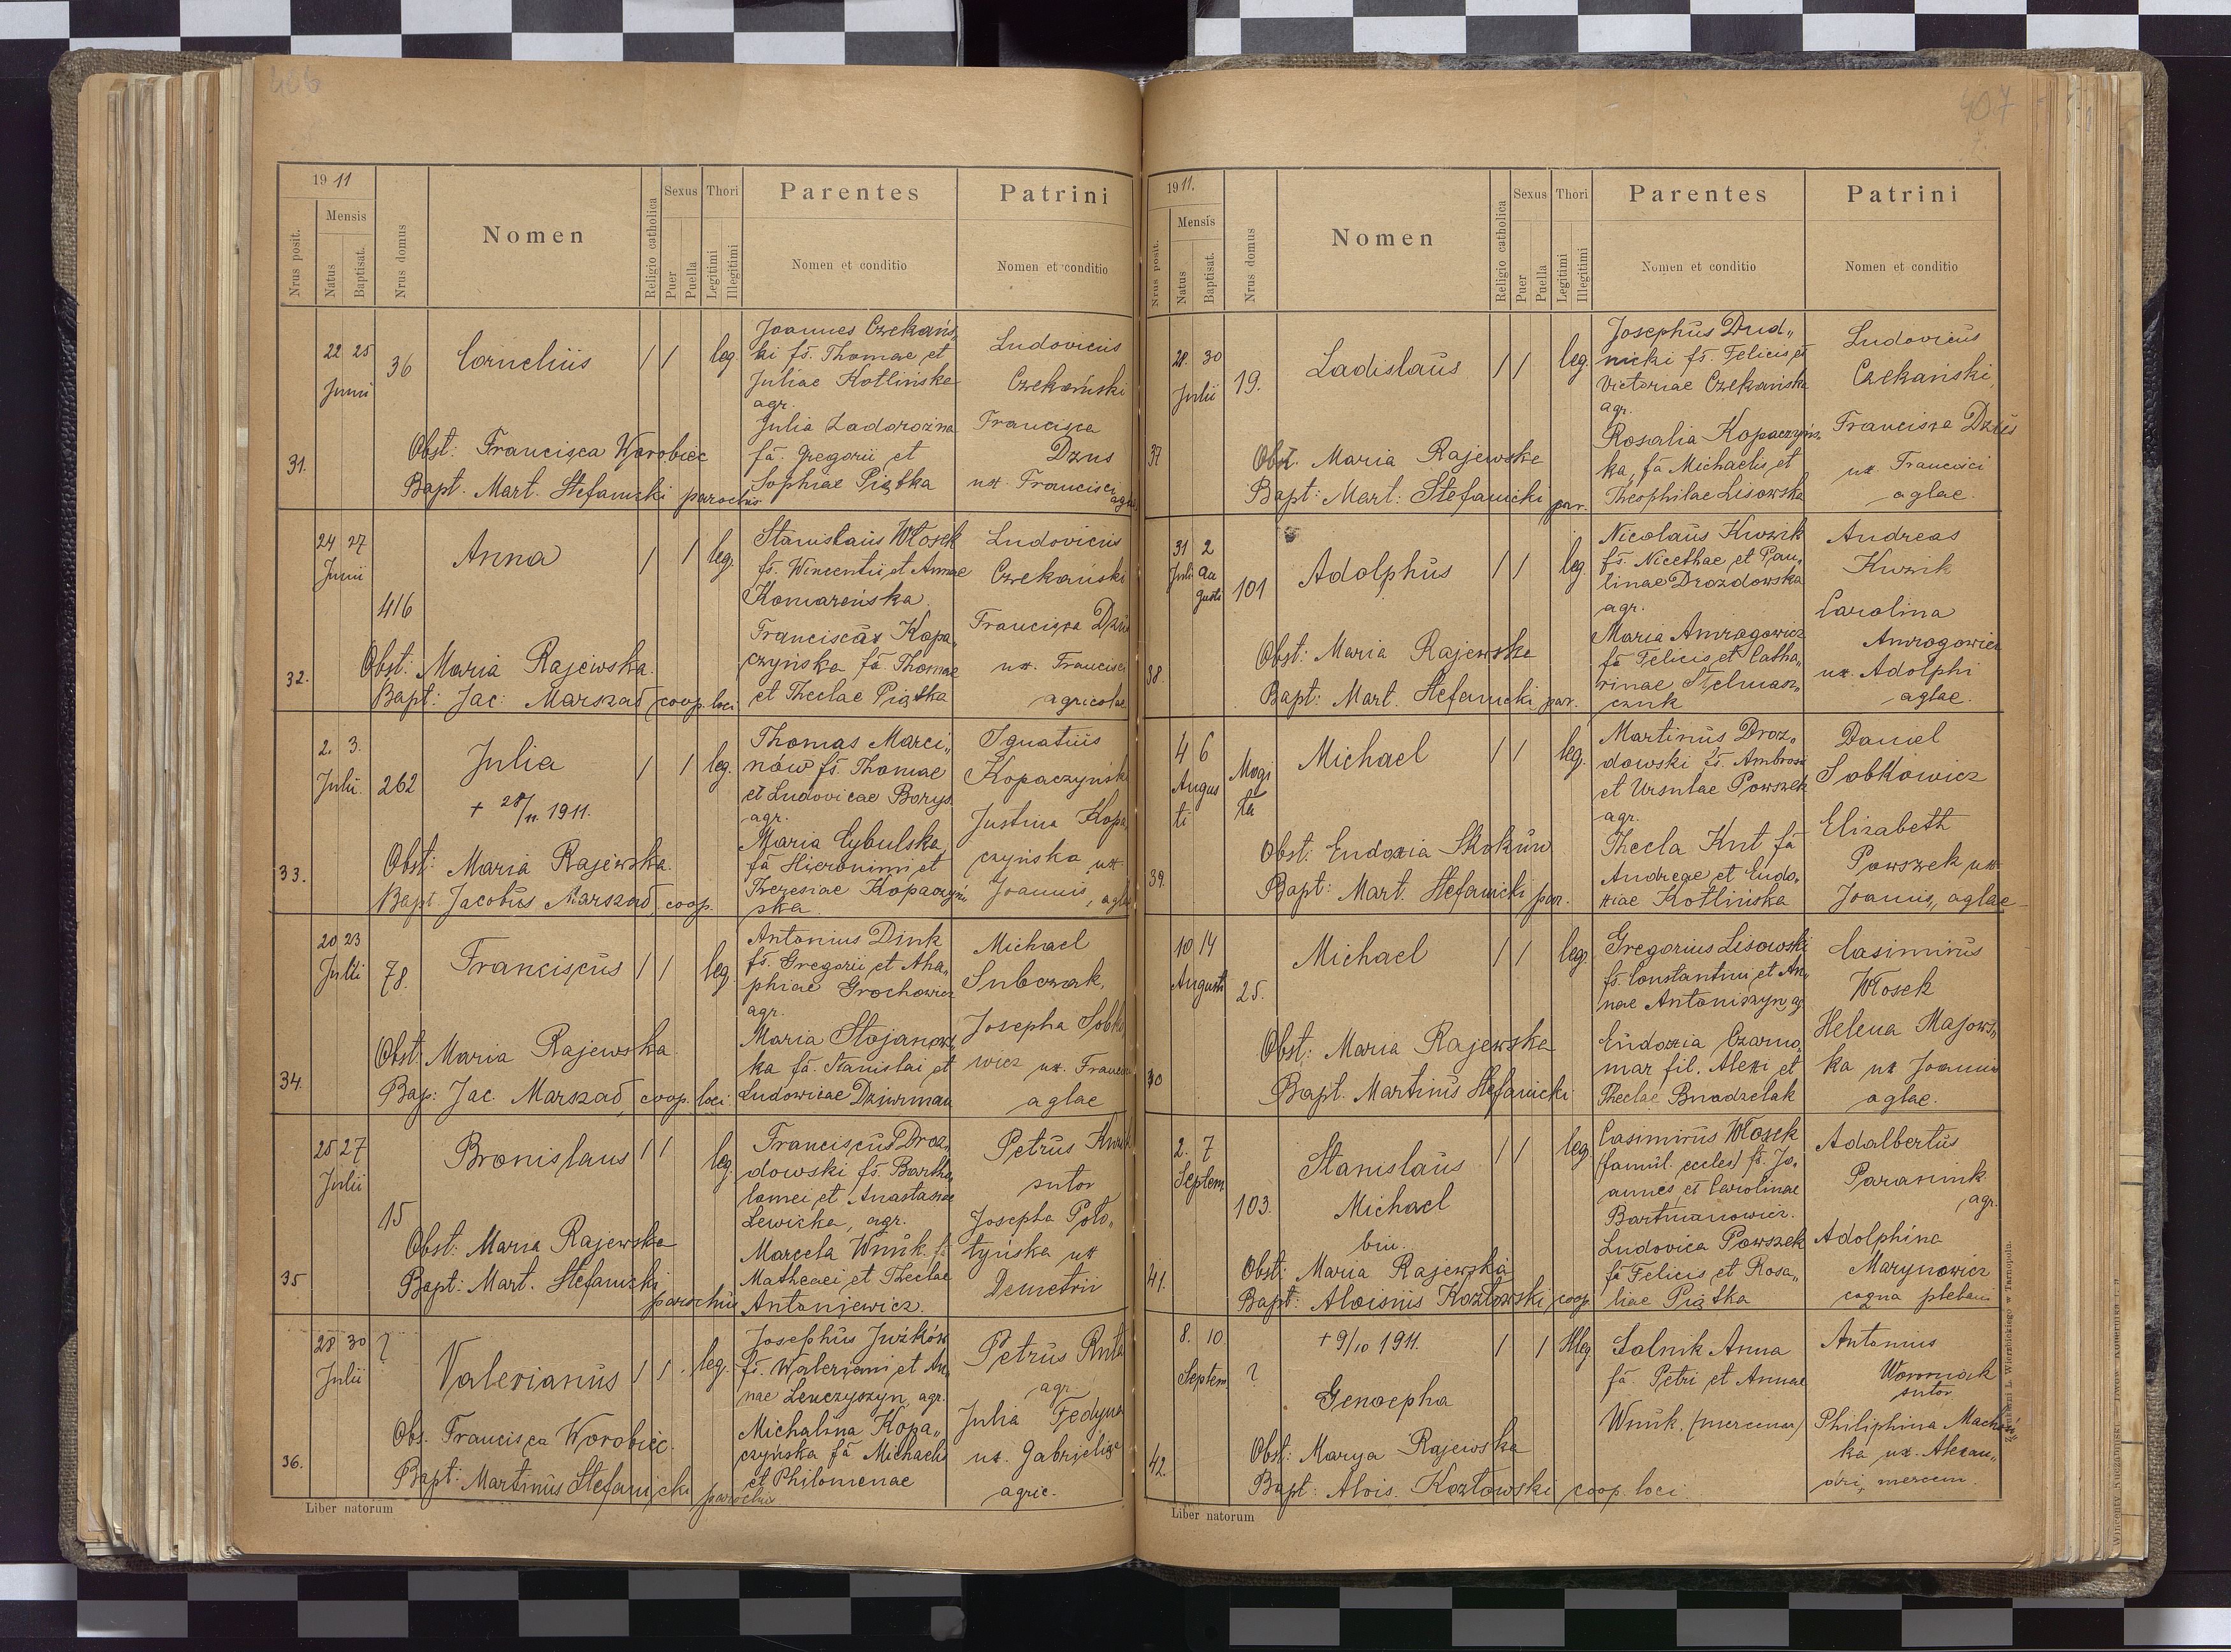 406
1911
Nrus posit.
Mensis
Natus
Baptisat.
Nrus domus
Nomen
Religio catholica
Sexus
Puer
Puella
Thori
Legitimi
Illegitimi
Parentes
Nomen et conditio
Patrini
Nomen et conditio
31.
22 25
Junii
36
Cornelius
/ /
leg.
Obst: Francisca Worobiec
Bapt. Mart. Stefanicki parochus
Joannes Czekańs„
ki fs. Thomae et
Juliae Kotlińska
agr.
Julia Zadorożna
fa. Gregorii et
Sophiae Piątka
Ludovicus
Czekański
Francisca
Dzus
ux. Francisci
agr.
32.
24 27
Junii
416
Anna
/ /
leg.
Obst: Maria Rajewska.
Bapt: Jac: Marszał coop. loci
Stanislaus Włosek
fs. Wincentii et Annae
Komareńska.
Kopa„
czyńska fa. Thomae
et Theclae Piątka
Ludovicus
Czekański
Francisca
ux. Francisci
agricolae
33.
2. 3.
Julii.
262
Julia
+ 28/11. 1911.
/ /
leg.
Obst: Maria Rajewska.
Bapt Jacobus Marszał. coop.
Thomas Marci„
nów fs. Thomae
et Ludovicae Borys
agr.
Maria Cybulska
fa Hieronimi et
Theresiae Kopaczyń„
ska.
Ignatius
Kopaczyński
Justina Kopa„
czyńska ux.
Joannis,
34.
20 23
Julii
78.
Franciscus
/ /
leg.
Obst: Maria Rajewska
Bap: Jac. Marszał, coop. loci
Antonius Dink
fs. Gregorii et Aha„
phiae Grochowicz
agr.
Maria Stojanows„
ka fa. Stanislai et
Ludowicae Dziurman
Michael
Subczak,
Josepha Sobko
wicz ux.
aglae
35
25 27
Julii
15
Bronislaus
/ /
leg.
Obst: Maria Rajewska
Bapt: Mart. Stefanicki
parochus
Franciscus Droz„
dowski fs. Bartho
lomei et Anastasiae
Lewicka, agr.
Marcela Wnuk. fa
Matheaei et Theclae
Antoniewicz.
Petrus
sutor
Josepha Poto„
tyńska ux
Demetrii
36.
28 30
Julii
?
Valerianus
/ /
leg.
Obs. Francisca Worobiec.
Bapt: Martinus Stefanicki
parochus
Josephus Juzków
fs. Waleriani et An„
nae Lewczyszyn, agr.
Michalina Kopa„
czyńska fa Michaeli
et Philomenae
Petrus Ruta
agr.
Julia Fedyna
ux. Gabrielis
agric.
Liber natorum
407
1911.
Nrus posit.
Mensis
Natus
Baptisat.
Nrus domus
Nomen
Religio catholica
Sexus
Puer
Puella
Thori
Legitimi
Illegitimi
Parentes
Nomen et conditio
Patrini
Nomen et conditio
37
28. 30
Julii
19.
Ladislaus
/ /
leg.
Obst. Maria Rajewska
Bapt: Mart: Stefanicki par.
Josephus Dud„
nicki fs. Felicis et
Victoriae Czekańska
agr.
Rosalia Kopaczyńs„
ka, fa Michaelis et
Theophilae Lisowska
Ludovicus
Czekański,
Francisca Dzus
ux. Francisci
aglae.
38.
31 2
Julii Au
gusti
101
Adolphus
/ /
leg.
Obst: Maria Rajewska
Bapt: Mart. Stefanicki par.
Nicolaus Kuzik
fs. Nicethae, et Pau„
linae Drozdowska
agr.
Maria Amrogowicz
fa Felicis et Catha„
rinae Stelmasz„
czuk
Andreas
Kuzik
Carolina
Amrogowicz
ux. Adolphi
aglae.
39.
4 6
Augus
ti
Mogi
ła
Michael
/ /
leg.
Obst: Eudoxia Skokun
Bapt: Mart. Stefanicki par.
Martinus Droz„
dowski fs. Ambrosii
et Ursulae Powszek
agr.
Thecla Knt fa
Andreae et Eudo„
xiae Kotlińska
Daniel
Sobkowicz
Elizabeth
Powszek ux
Joannis,, aglae
40
10 14
Augusti
25.
Michael
/ /
leg.
Obst: Maria Rajewska
Bapt. Martinus Stefanicki
Gregorius Lisowski
fs. Constantini et An„
nae Antoniszyn ag
Eudoxia Czarno
mar fil. Alexi et
Theclae Bnadzelak
Casimirus
Włosek
Helena Majows„
ka ux Joannis
aglae.
41.
2. 7
Septem.
103.
Stanislaus
Michael
bin.
/ /
leg
Obst: Maria Rajewska
Bapt: Aloisius Kozłowski coop
Casimirus Włosek
(famul. eccles) fs. Jo„
annes, et Carolinae
Bartmanowicz.
Ludovica Powszek
fa Felicis et Rosa„
liae Piątka
Adalbertus
Paraniuk
agr.
Adolphina
Marynowicz
cogna plebani
42.
8. 10.
Septem
?
+ 9/10 1911.
Genoepha
/ /
Illeg
Obst: Marya Rajewska
Bapt: Alois. Kozłowski coop. loci.
Solnik Anna
fa. Petri et Annae
Wnuk. (mercenar)
Antonius
Woroniak
sutor
Philiphina
ka ux. Alexan„
dri, mercen.
Liber natorum